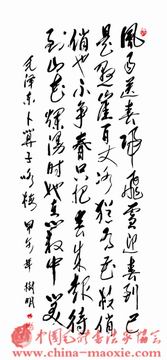 風雨送春歸飛雪迎春到已
是懸崖百丈冰猶有花枝俏
俏也不争春只把春来報待
到山花爛漫时她在叢中笑
毛泽东卜算子咏梅 甲午年 樹明
www.china-maoxie.com